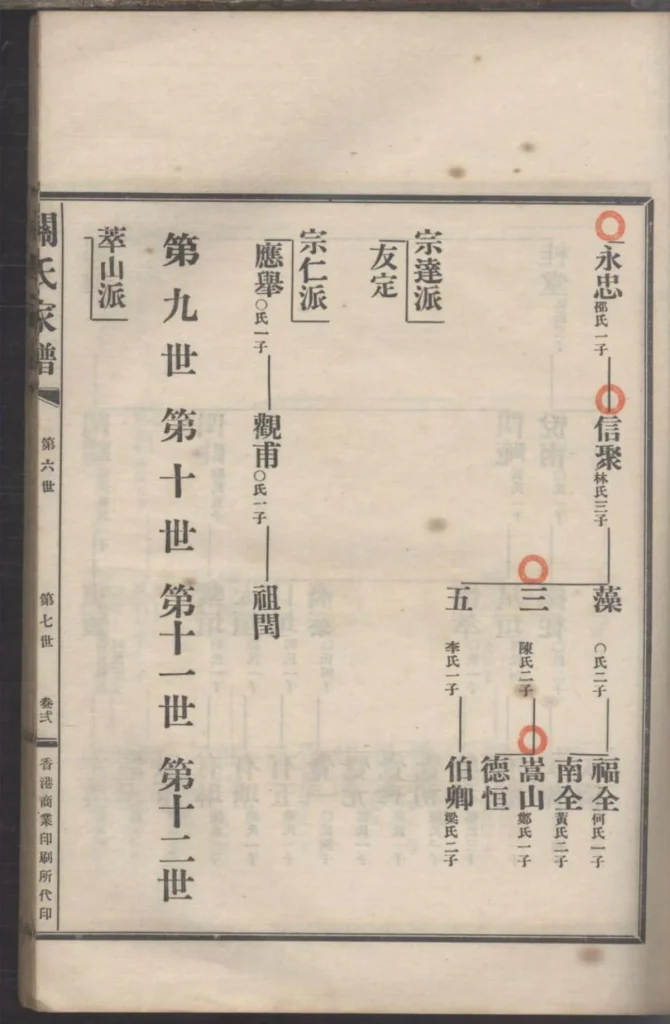 永忠
鄧氏一子
信聚
林氏三子
藻
○氏二子
福全
何氏一子
南全
黃氏二子
三
陳氏二子
嵩山
鄭氏一子
德恒
五
李氏一子
伯卿
梁氏二子
宗達派
友定
宗仁派
應舉
○氏一子
觀甫
○氏一子
祖閏
第九世
第十世
第十一世
第十二世
萃山派
關氏家譜
第六世
第七世
卷弍
香港商業印刷所代印